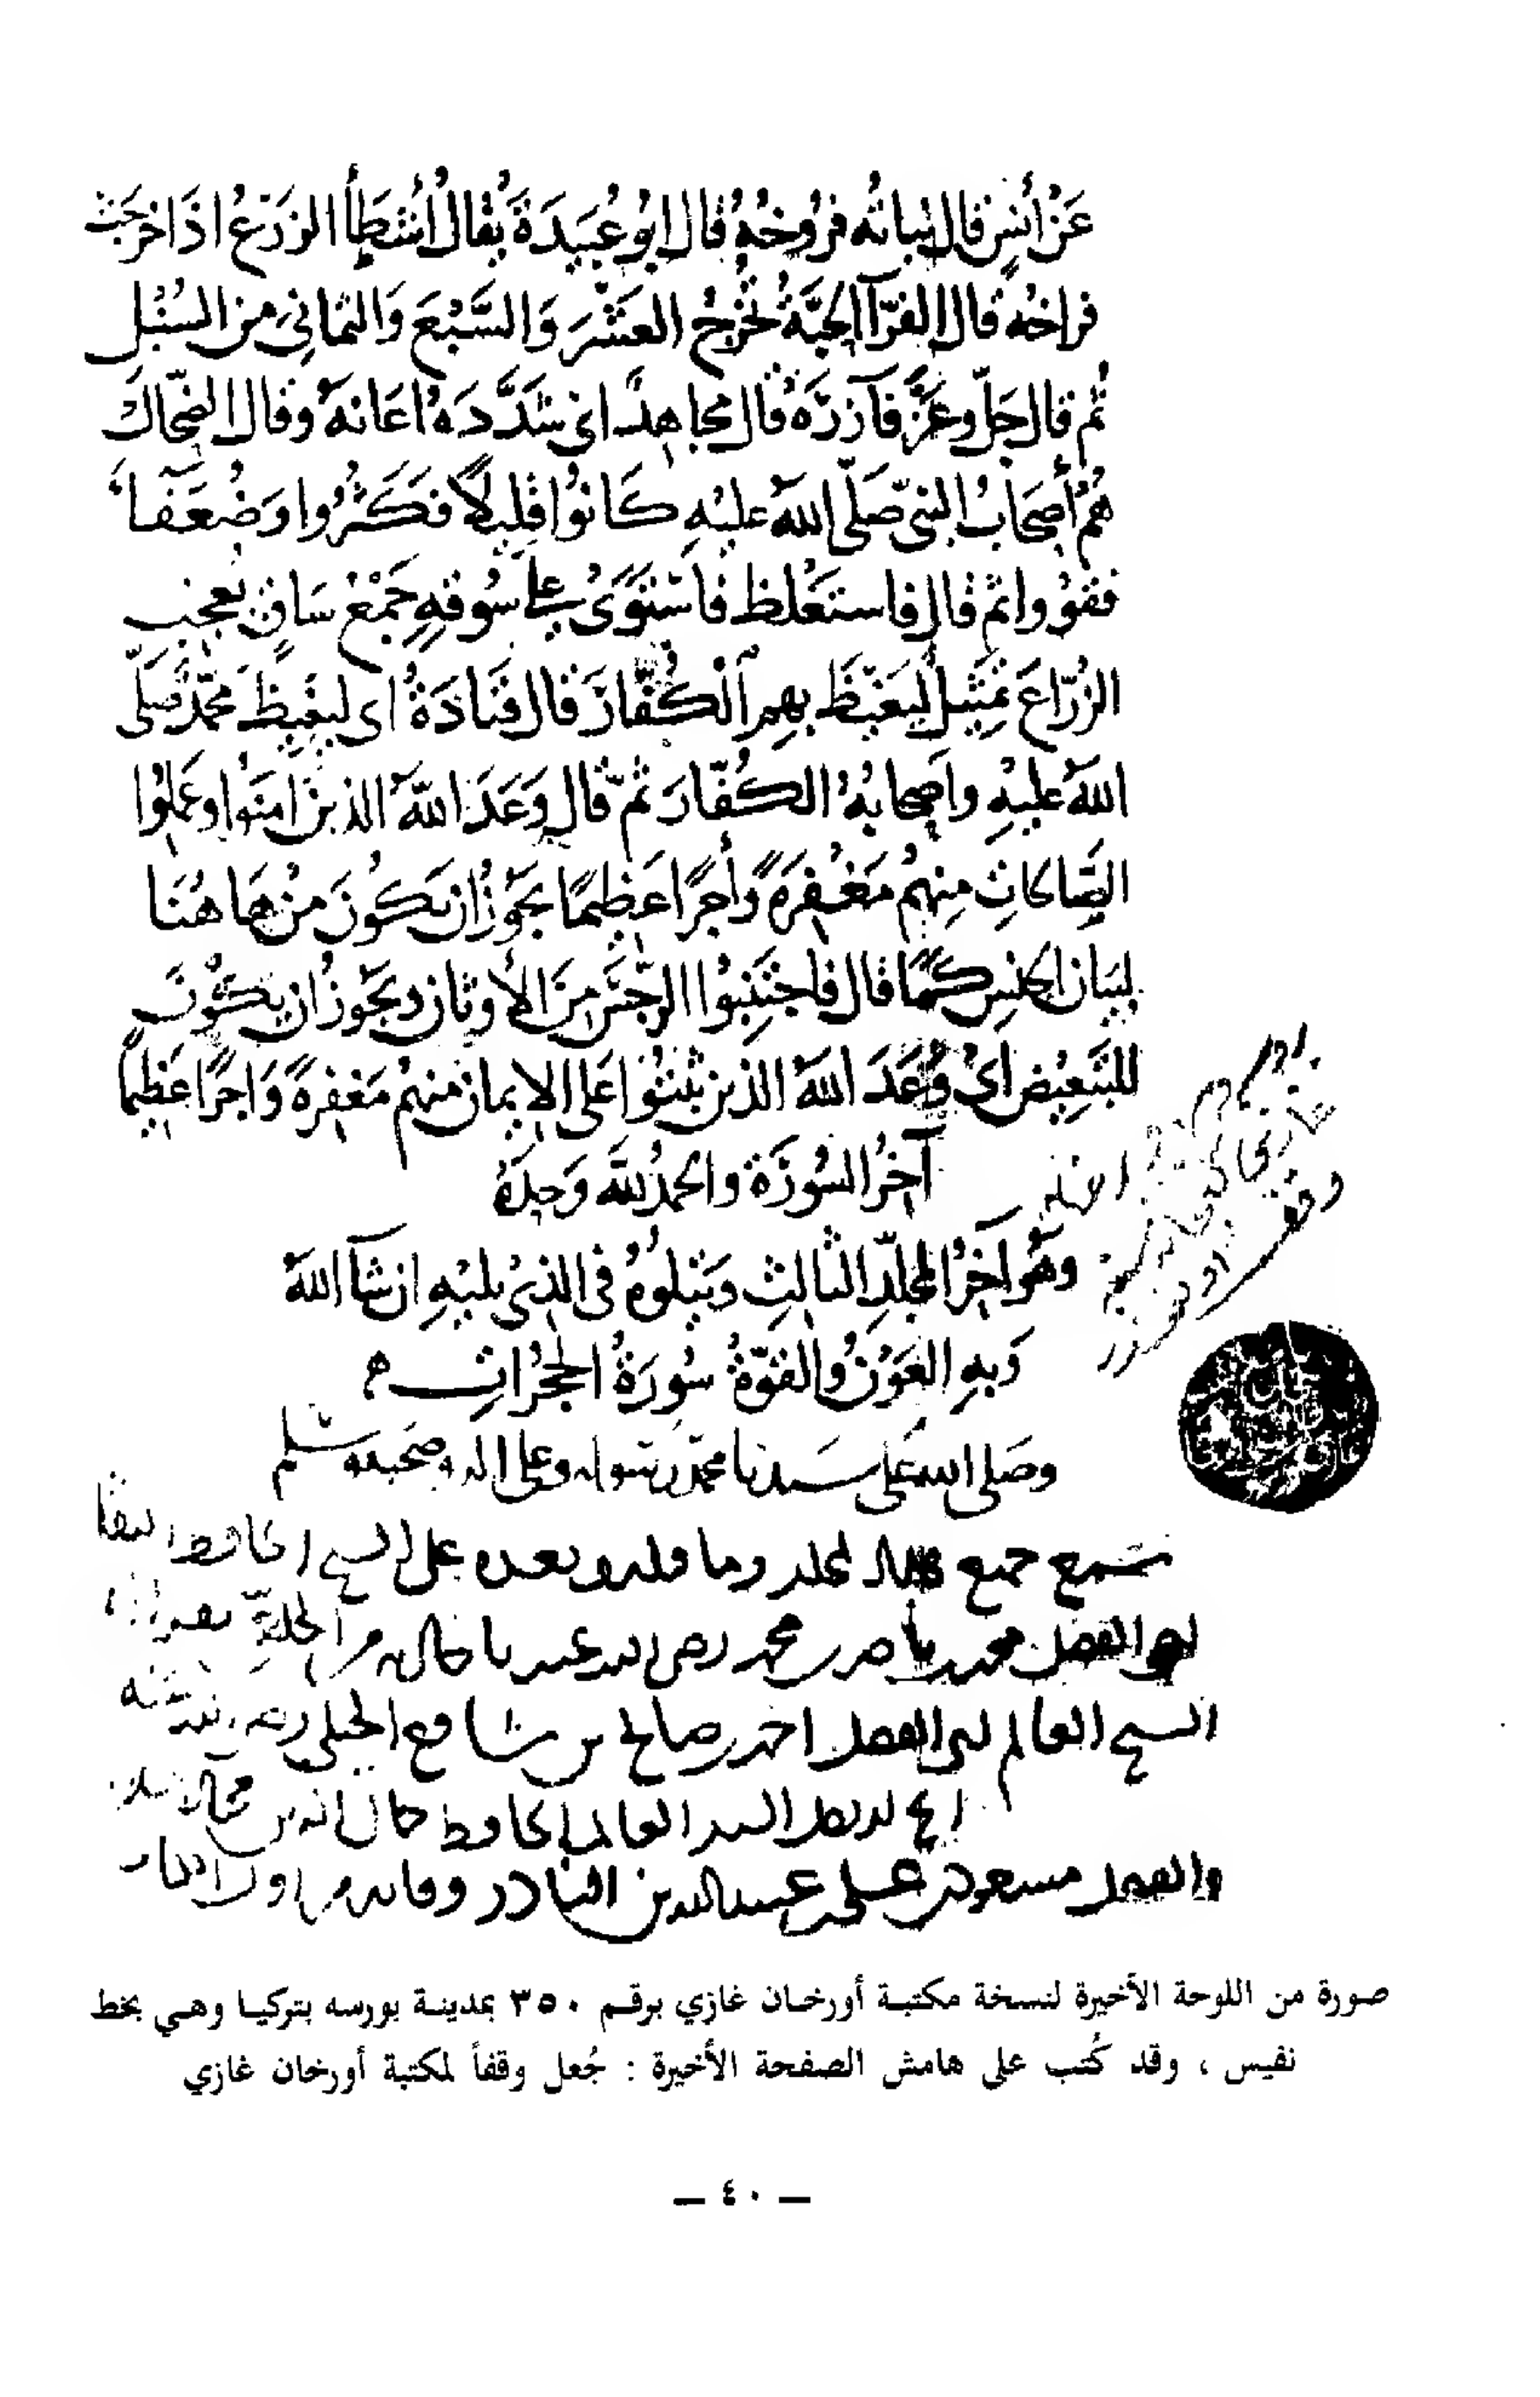 عَنْ أنَسٍ قال نباتُه فروخُهُ قال ابو عُبَيدَةَ يُقالُ أَشْطَأَ الزَرْعُ اذَا خرجَتْ
فراخُهُ قال الفرّآ الحبَّةُ تُخْرِجُ العَشْرَ وَالسَّبْعَ وَالثمانِيَ مِنَ السُنْبُلِ
ثُم قال جَلّ وعَزَّ فآزرَهُ قال مجاهدٌ اي شَدَّدَهُ اعَانهُ وقال الضحّاك
هُمْ أصحَابُ النبيّ صَلّى اللهُ عليْهِ كَانوُا قلِيلًا فكَثُرُوا وَضُعَفَآءَ
فقوُوا ثم قال فاستغلَظ فاسْتَوَىٰ على سُوقهِ جَمْعُ سَاقٍ يُعجِبُ
الزُرّاعَ تمثيلٌ لِيَغيْظَ بهِمُ ٱلكُفّارَ قال قتَادَةُ اى ليَغِيظَ محمَّدٌ صَلّى
اللهُ عليْهِ واَصحابُهُ الكُفّارَ ثمّ قال وَعَدَ اللهُ الذينَ آمَنوُا وعَمِلوُا
الصَّالحَاتِ مِنهُمْ مَغْفِرَةً وأَجرًا عَظِيمًا يَجوُزُ ان تكُونَ مِنْ هَا هُنَا
لِبيَان الجنْسِ كَمَا قال فاجتَنِبُوا الرّجْسَ مِنَ الأَوثان ويَجُوزُ ان يكُونَ
للتَّبعِيْضِ اىْ وَعَدَ اللهُ الذين ثبَتُوا عَلى الايمان منهُمْ مَغفِرَةً وَاجرًا عَظِيمًا
آخِرُ السُورَة والحمدُ للهِ وَحدَهُ
وهُوَ آخِرُ المجلّدِ الثالثِ وَيَتلوُهُ فى الذىْ يليْهِ ان شآ اللهُ
وَبهِ العَوْنُ والقوّةُ سُورَةُ الحُجُرَاتِ
وصَلى الله عَلى سَيدنا محمّد رسوله وعلى اله وصحبه وسلم
سمع جميع هذا المجلد وما قبله وبعده على الشيخ الحافظ
ابو الفضل محمد بن ناصر بن محمد رضى الله عنه
الشيخ العالم ابى الفضل احمد بن صالح بن شافع الجيلى
والفضل مسعود بن على بن عبيد الله بن النادر
صورة من اللوحة الأخيرة لنسخة مكتبة أورخان غازي برقم ٣٥٠ بمدينة بورسه بتركيا وهي بخط
نفيس ، وقد كُتب على هامش الصفحة الأخيرة : جُعل وقفاً لمكتبة أورخان غازي
— ٤٠ —